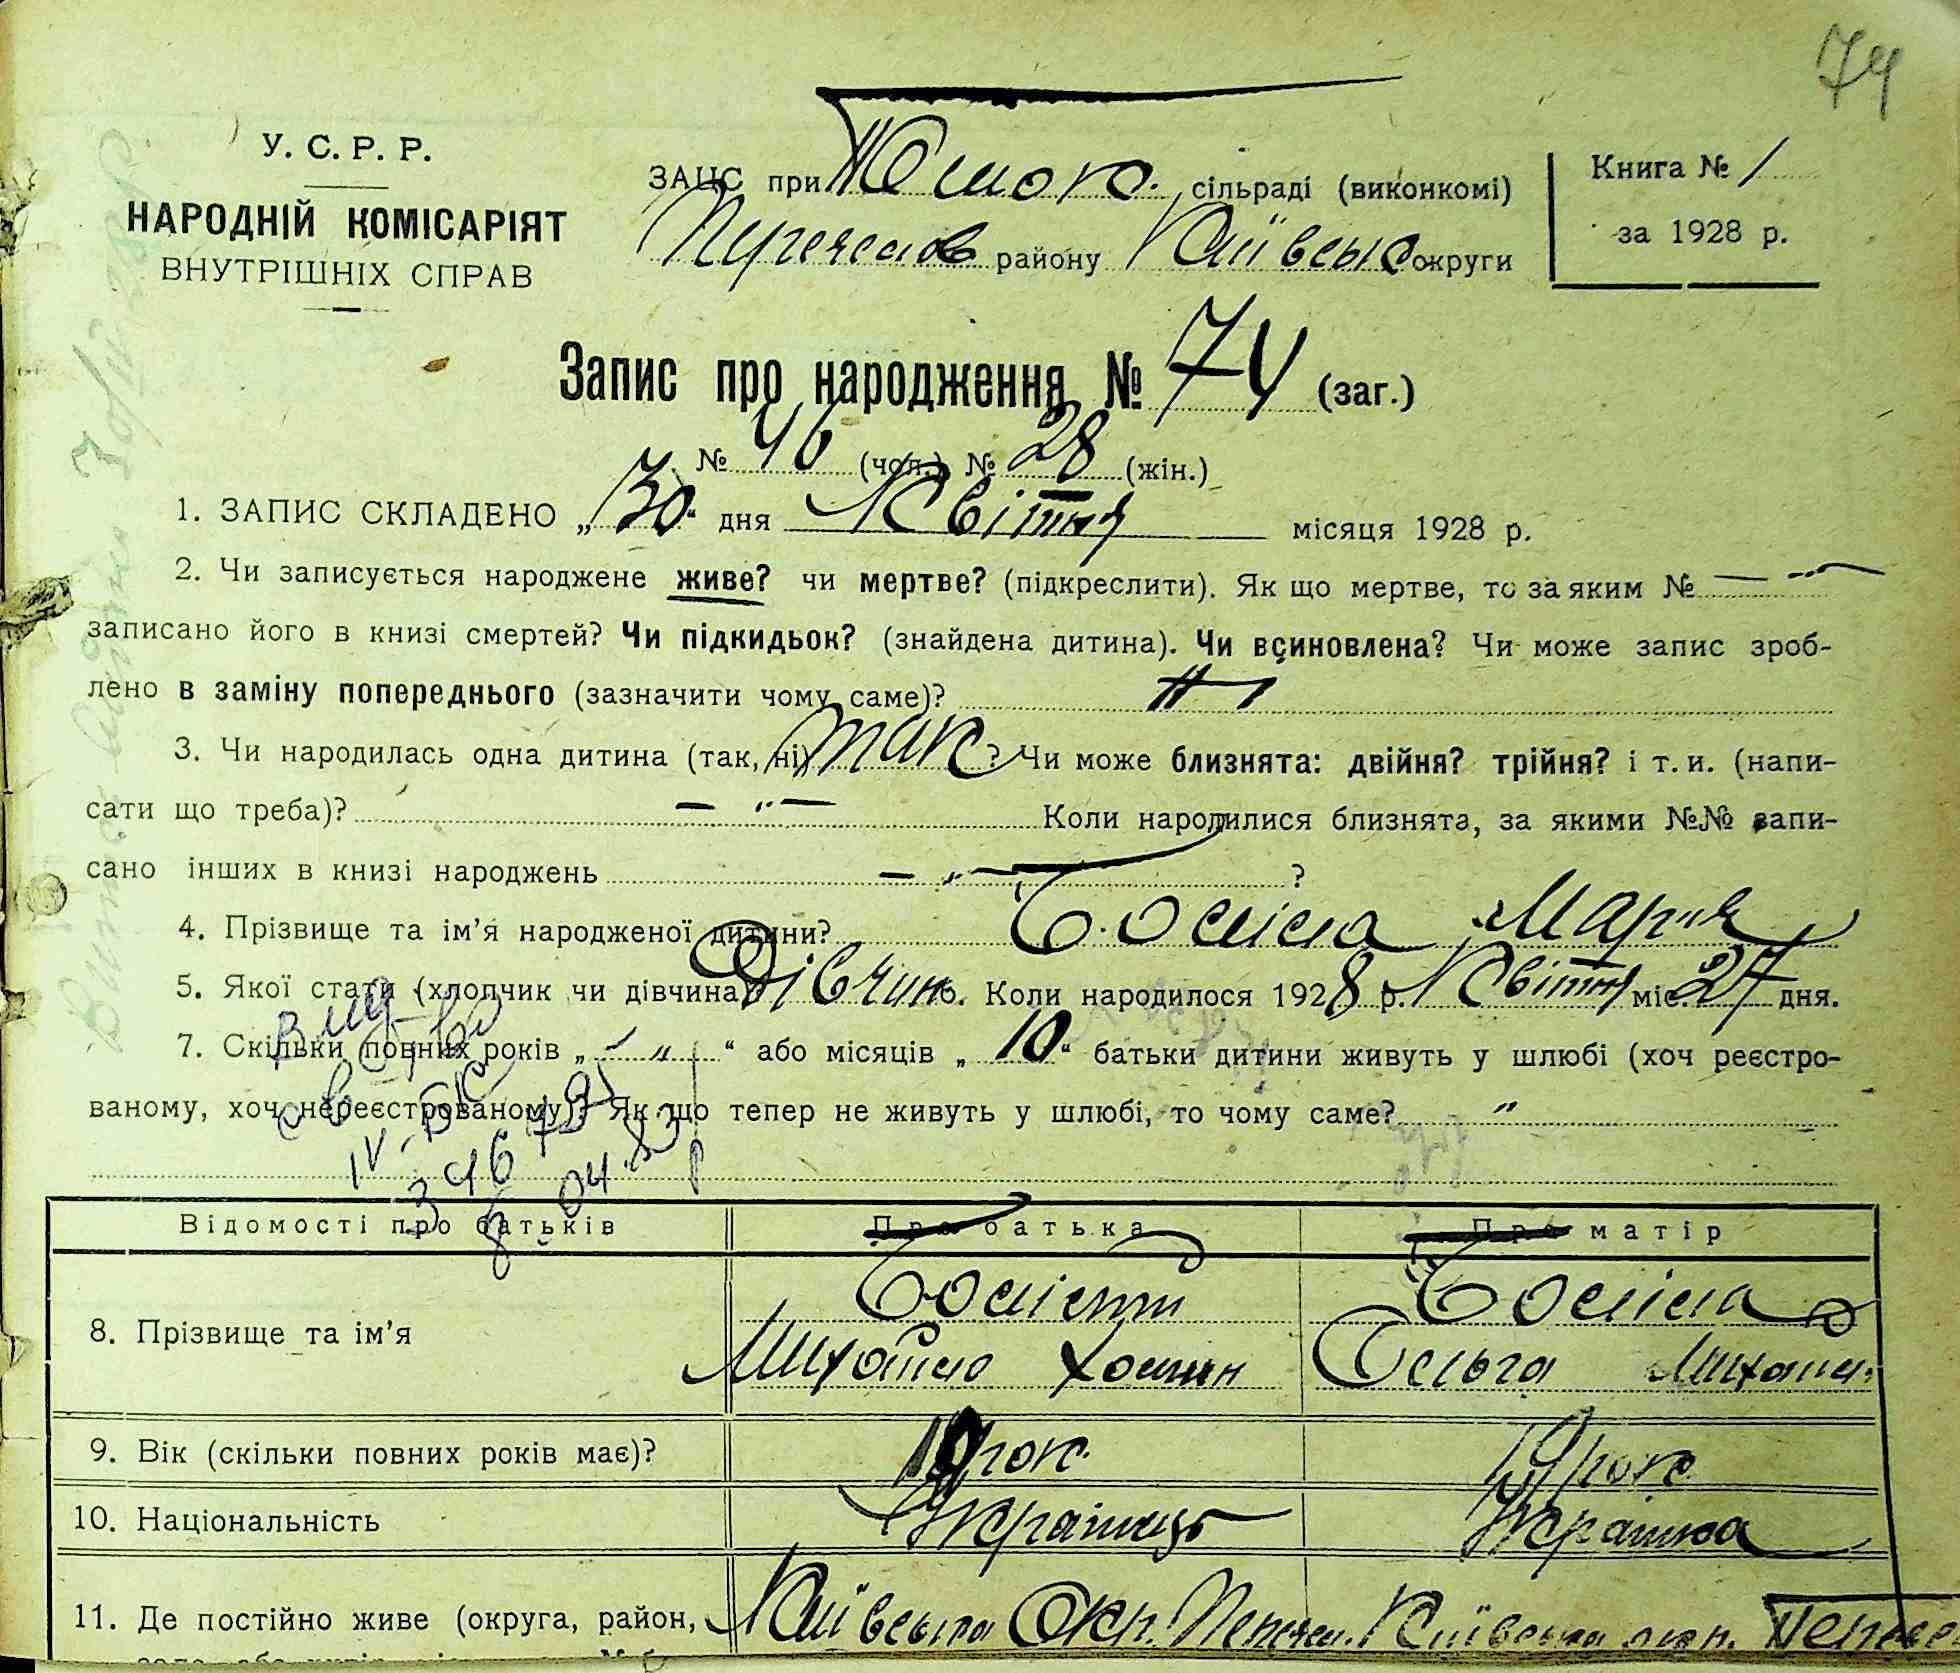 74
У. С. Р. Р.
НАРОДНІЙ КОМІСАРІЯТ
ВНУТРІШНІХ СПРАВ
ЗАЦС при сільраді (виконкомі)
району Київськ округи
Книга № 1
за 1928 р.
Запис про народження № 74 (заг.)
№ 46 (чол.) № 28 (жін.)
1. ЗАПИС СКЛАДЕНО „30“ дня Квітня місяця 1928 р.
2. Чи записується народжене живе? чи мертве? (підкреслити). Як що мертве, то за яким № — „ —
записано його в книзі смертей? Чи підкидьок? (знайдена дитина). Чи всиновлена? Чи може запис зроб-
лено в заміну попереднього (зазначити чому саме)?
3. Чи народилась одна дитина (так, ні) так ? Чи може близнята: двійня? трійня? і т. и. (напи-
сати що треба)? — „ — Коли народилися близнята, за якими №№ запи-
сано інших в книзі народжень — „ — ?
4. Прізвище та ім'я народженої дитини? Мария
5. Якої стати (хлопчик чи дівчина)? Дівчина. Коли народилося 1928 р. Квітня міс. 27 дня.
7. Скільки повних років „ — „ “ або місяців „ 10 “ батьки дитини живуть у шлюбі (хоч реєстро-
ваному, хоч нереєстрованому)? Як що тепер не живуть у шлюбі, то чому саме? „
Відомості про батьків Про батька Про матір
8. Прізвище та ім'я
Михайло Ольга
9. Вік (скільки повних років має)? 19 рок. 19 рок.
10. Національність Українець Українка
11. Де постійно живе (округа, район, Київська Окр. Київська окр.